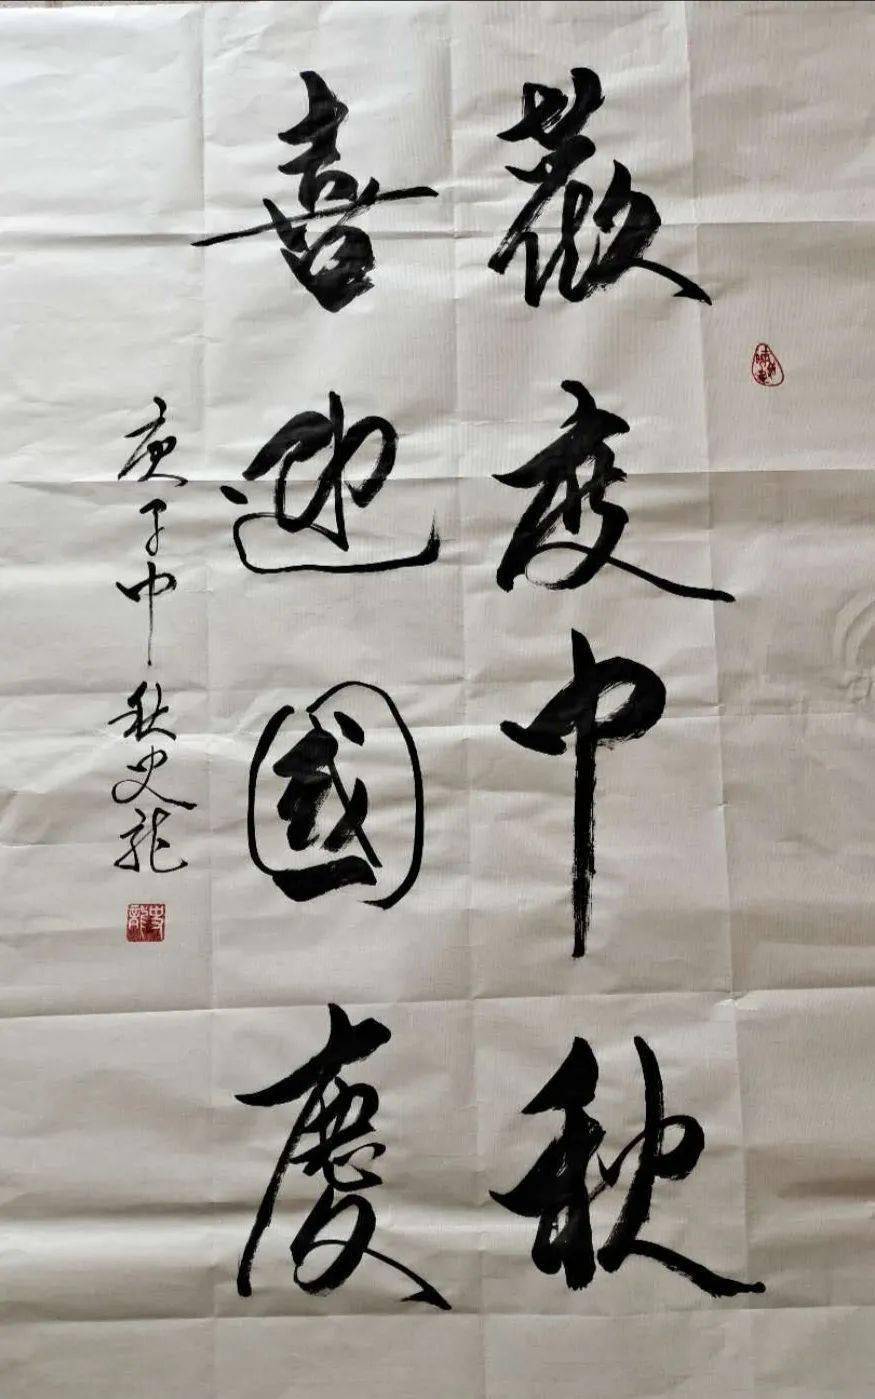 歡度中秋
喜迎國慶
庚子中秋史龍
史龍